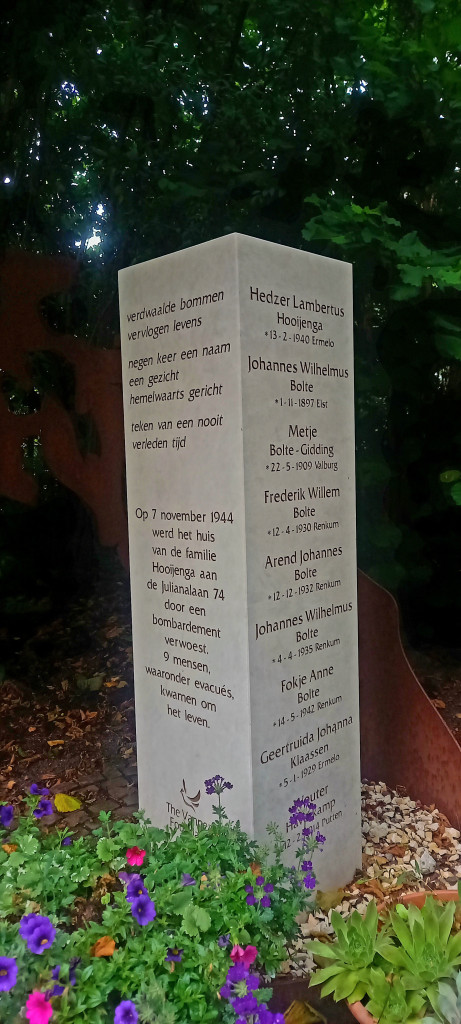 verdwaalde bommen
vervlogen levens
negen keer een naam
een gezicht
hemelwaarts gericht
teken van een nooit
verleden tijd
Op 7 november 1944
werd het huis
van de familie
Hooijenga aan
de Julianalaan 74
door een
bombardement
verwoest.
9 mensen,
waaronder evacués,
kwamen om
het leven.
The
Hedzer Lambertus
Hooijenga
*13-2-1940 Ermelo
Johannes Wilhelmus
Bolte
*1-11-1897 Elst
Metje
Bolte-Gidding
*22-5-1909 Valburg
Frederik Willem
Bolte
*12-4-1930 Renkum
Arend Johannes
Bolte
*12-12-1932 Renkum
Johannes Wilhelmus
Bolte
*4-4-1935 Renkum
Fokje Anne
Bolte
*14-5-1942 Renkum
Geertruida Johanna
Klaassen
*5-1-1929 Ermelo
Wouter
Putten